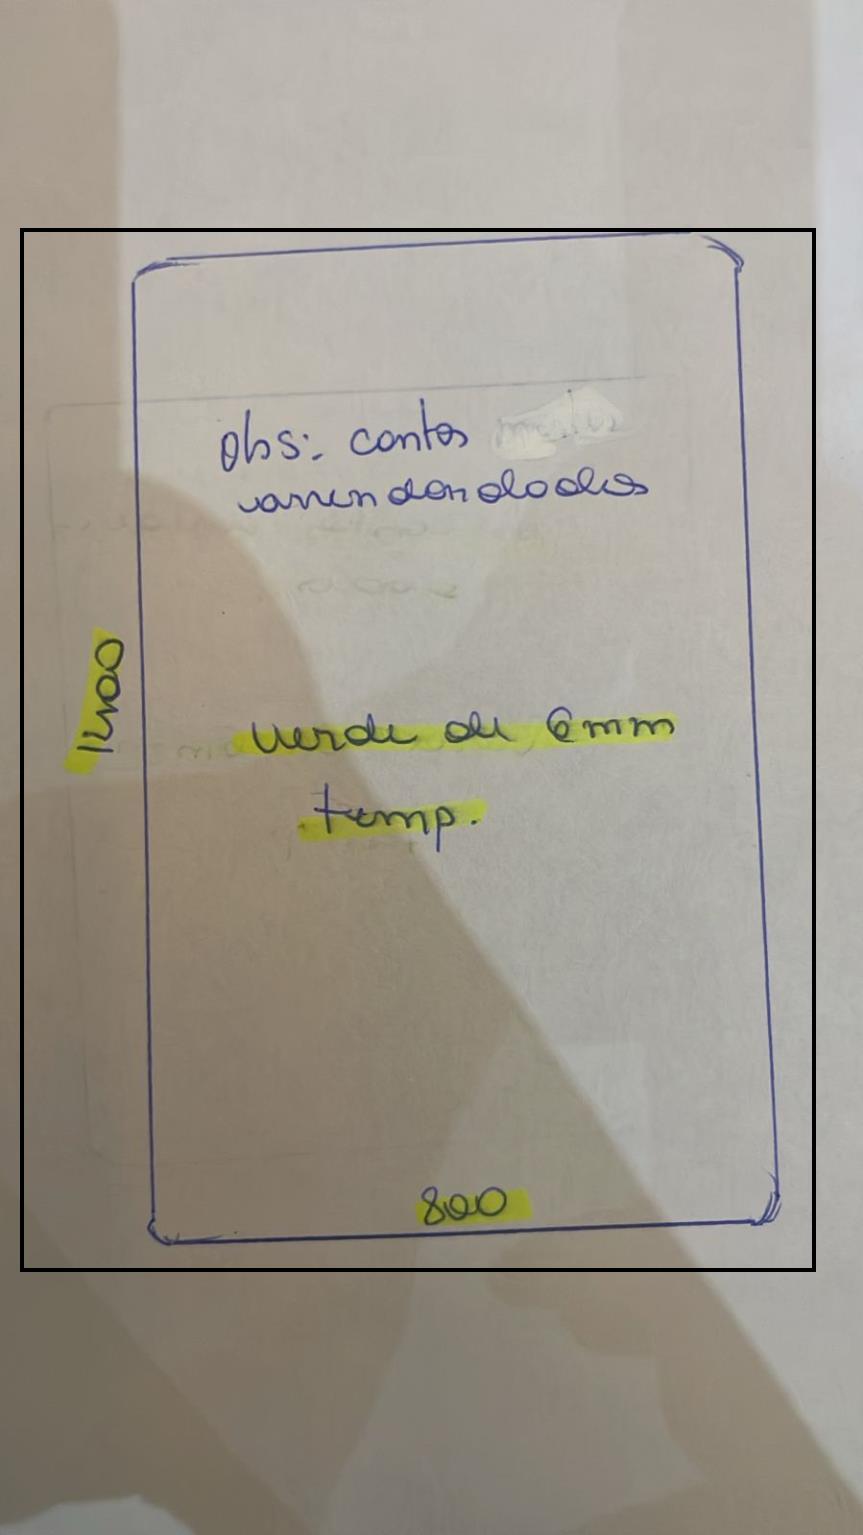 Obs: cantos
arrendondados
1400
verde de 6mm
temp.
800